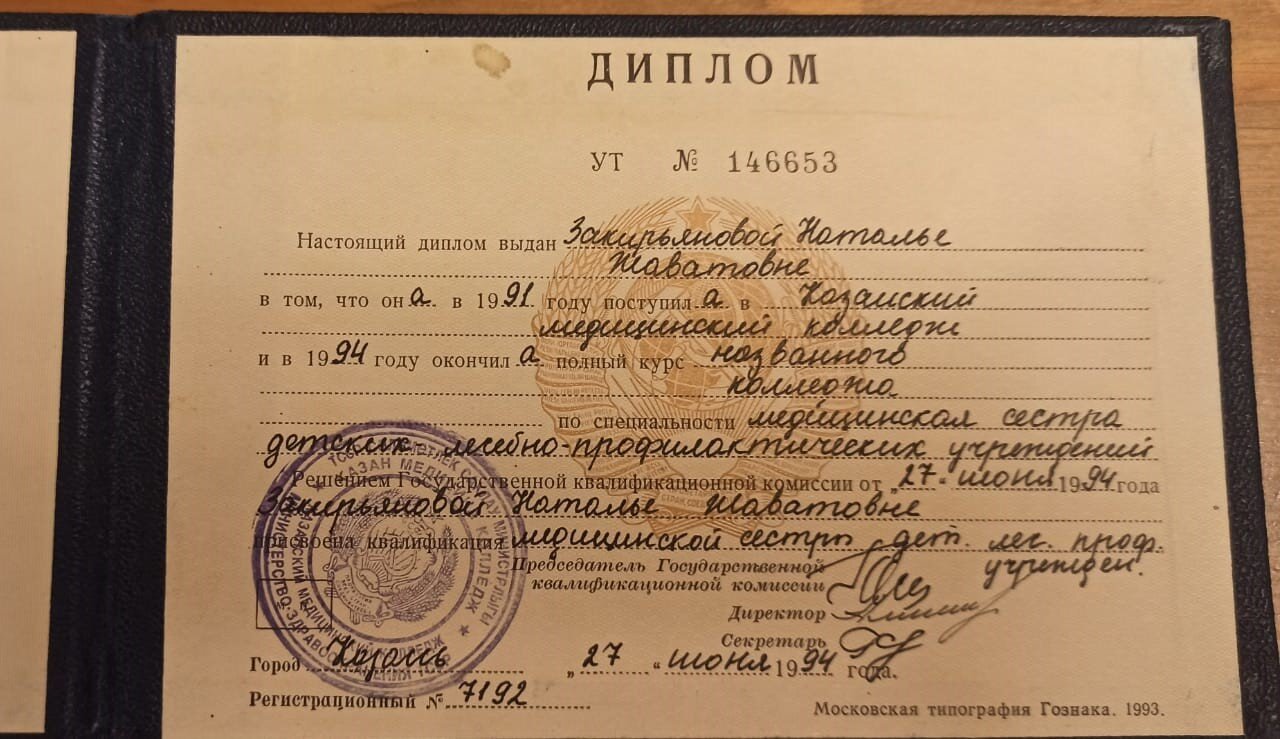 ДИПЛОМ
УТ № 146653
Настоящий диплом выдан Закирьяновой Наталье
Жаватовне
в том, что она в 1991 году поступила в Казанский
медицинский колледж
и в 1994 году окончила полный курс названного
колледжа
по специальности медицинская сестра
детских лечебно-профилактических учреждений
Решением Государственной квалификационной комиссии от „27" июня 1994 года
Закирьяновой Наталье Жаватовне
присвоена квалификация медицинской сестры дет. леч. проф.
учрежден.
Председатель Государственной
квалификационной комиссии
Директор
Секретарь
Город Казань „27" июня 1994 года.
Регистрационный № 7192
Московская типография Гознака. 1993.
КАЗАН МЕДИЦИНА КОЛЛЕДЖ
КАЗАНСКИЙ МЕДИЦИНСКИЙ КОЛЛЕДЖ
МИНИСТЕРСТВО ЗДРАВООХРАНЕНИЯ